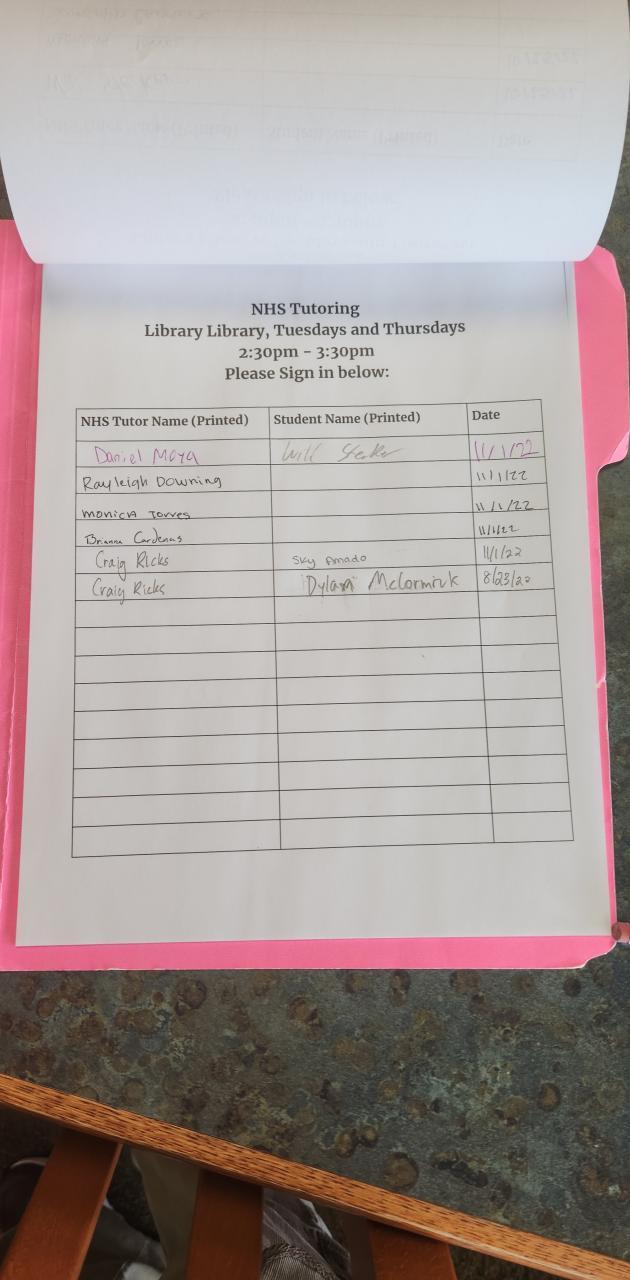 NHS Tutoring
Library Library, Tuesdays and Thursdays
2:30pm - 3:30pm
Please Sign in below:
NHS Tutor Name (Printed) Student Name (Printed) Date
Daniel Moya Will 11/1/22
Rayleigh Downing 11/1/22
Monica Torres 11/1/22
Brianna Cardenas 11/1/22
Craig Ricks Sky Amado 11/1/22
Craig Ricks Dylan McCormick 8/23/22